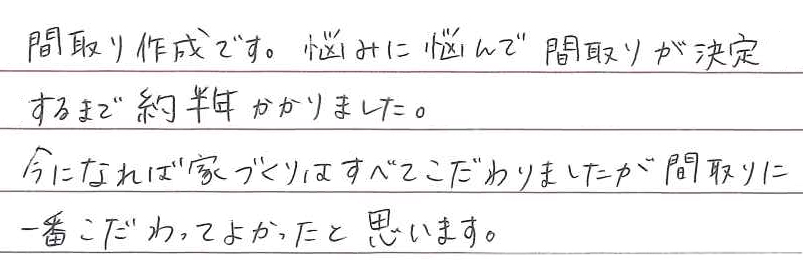 間取り作成です。悩みに悩んで間取りが決定
するまで約半年かかりました。
今になれば家づくりはすべてこだわりましたが間取りに
一番こだわってよかったと思います。